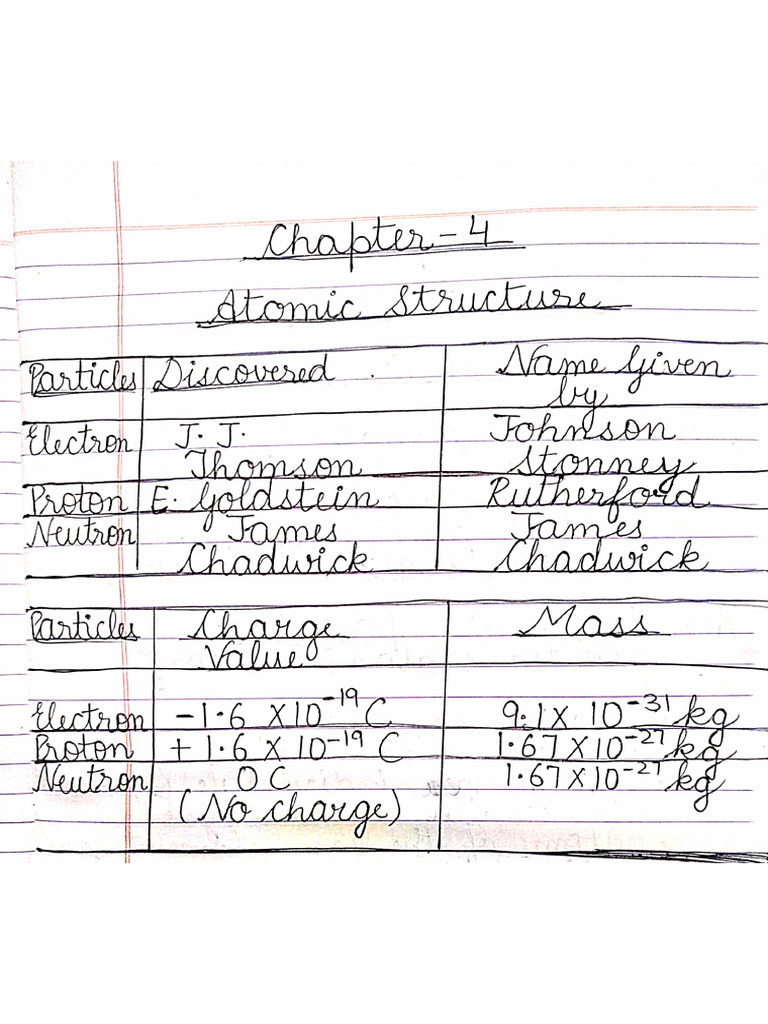 Chapter-4
Atomic Structure
Particles Discovered . Name Given
by
Electron J. J. Johnson
Thomson Stonney
Proton E. Goldstein Rutherford
Neutron James James
Chadwick Chadwick
Particles Charge Mass
Value
Electron -1.6 X10-19 C 9.1X 10-31 kg
Proton + 1.6 X 10-19 C 1.67X10-27 kg
Neutron 0 C 1.67X10-27 kg
(No charge)